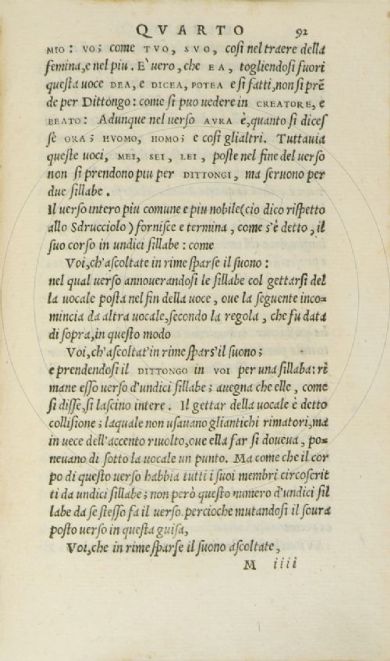 QVARTO 92
MIO: VO; come TVO, SVO, così nel traere della
femina, e nel piu. E' uero, che EA, togliendosi fuori
questa uoce DEA, e DICEA, POTEA e si fatti, non si prē
de per Dittongo: come si puo uedere in CREATORE, e
BEATO: Adunque nel uerso AVRA è, quanto si dices
se ORA; HVOMO, HOMO; e così gli altri. Tuttauia
queste uoci, MEI, SEI, LEI, poste nel fine del uerso
non si prendono piu per DITTONGI, ma seruono per
due sillabe.
Il uerso intero piu comune e piu nobile (cio dico rispetto
allo Sdrucciolo) fornisce e termina, come s'è detto, il
suo corso in undici sillabe: come
Voi, ch'ascoltate in rime sparse il suono:
nel qual uerso annouerandosi le sillabe col gettarsi del
la uocale posta nel fin della uoce, oue la seguente inco-
mincia da altra uocale, secondo la regola, che fu data
di sopra, in questo modo
Voi, ch'ascoltat' in rime spars' il suono;
e prendendosi il DITTONGO in VOI per una sillaba: ri
mane esso uerso d'undici sillabe; auegna che elle, come
si disse, si lascino intere. Il gettar della uocale è detto
collisione; laquale non usauano gli antichi rimatori, ma
in uece dell'accento riuolto, oue ella far si doueua, po-
neuano di sotto la uocale un punto. Ma come che il cor
po di questo uerso habbia tutti i suoi membri circoscrit
ti da undici sillabe; non però questo numero d'undici sil
labe da se stesso fa il uerso. percioche mutandosi il soura
posto uerso in questa guisa,
Voi, che in rime sparse il suono ascoltate,
M iiii